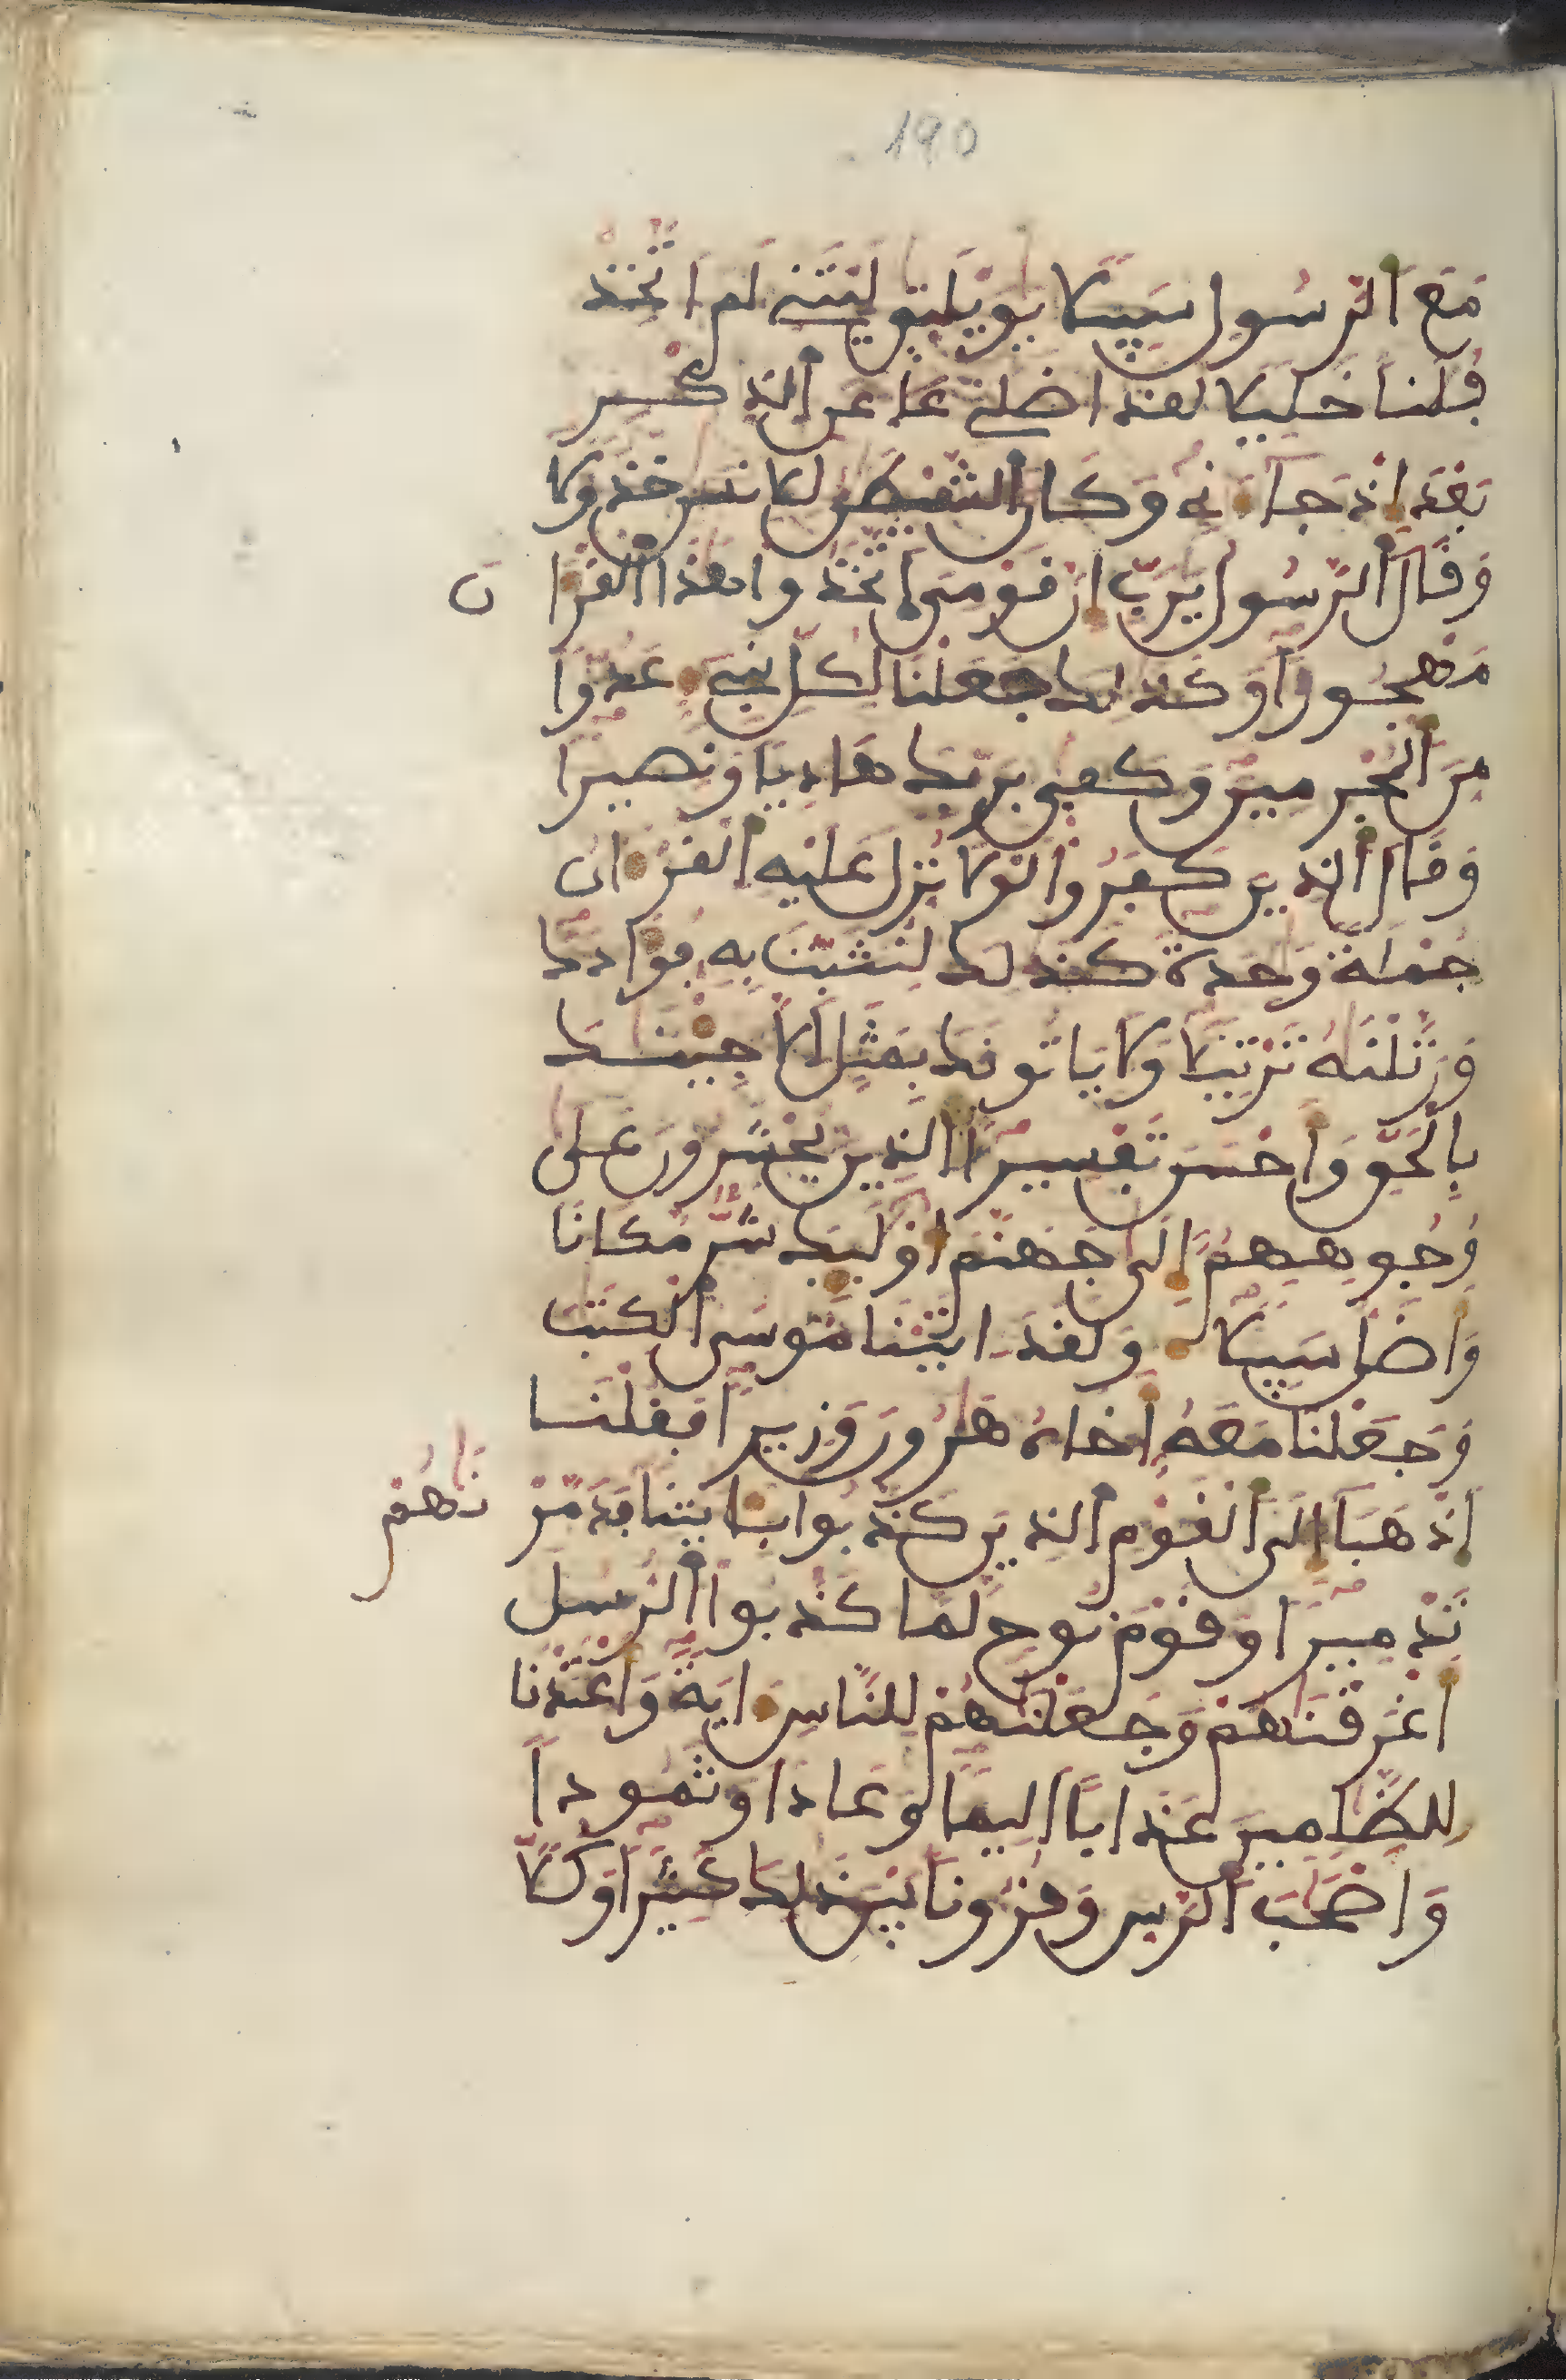 190
مع الرسول سبيلا يويلتى ليتنے لم اتخذ
فلنا خليلا لقد اضلنے عن الذكر
بعد اذ جاءنے وكان الشيطن للانسن خذولا
وقال الرسول يرب ان قومى اتخذوا هذا القران
مهجورا وكذلك جعلنا لكل نبے عدوا
من المجرمين وكفى بربك هاديا ونصيرا
وقال الذين كفروا لولا نزل عليه القران
جملة وحدة كذلك لنثبت به فوادك
ورتلنه ترتيلا ولا ياتونك بمثل الا جينك
بالحق واحسن تفسيرا الذين يحشرون على
وجوههم الى جهنم اوليك شر مكانا
واضل سبيلا ولقد اتينا موسى الكتب
وجعلنا معه اخاه هرون وزيرا فقلنا
اذهبا الى القوم الذين كذبوا بايتنا فدمرنهم
تدميرا وقوم نوح لما كذبوا الرسل
اغرقنهم وجعلنهم للناس اية واعتدنا
للظلمين عذابا اليما وعادا وثمودا
واصحب الرس وقرونا بين ذلك كثيرا وكلا